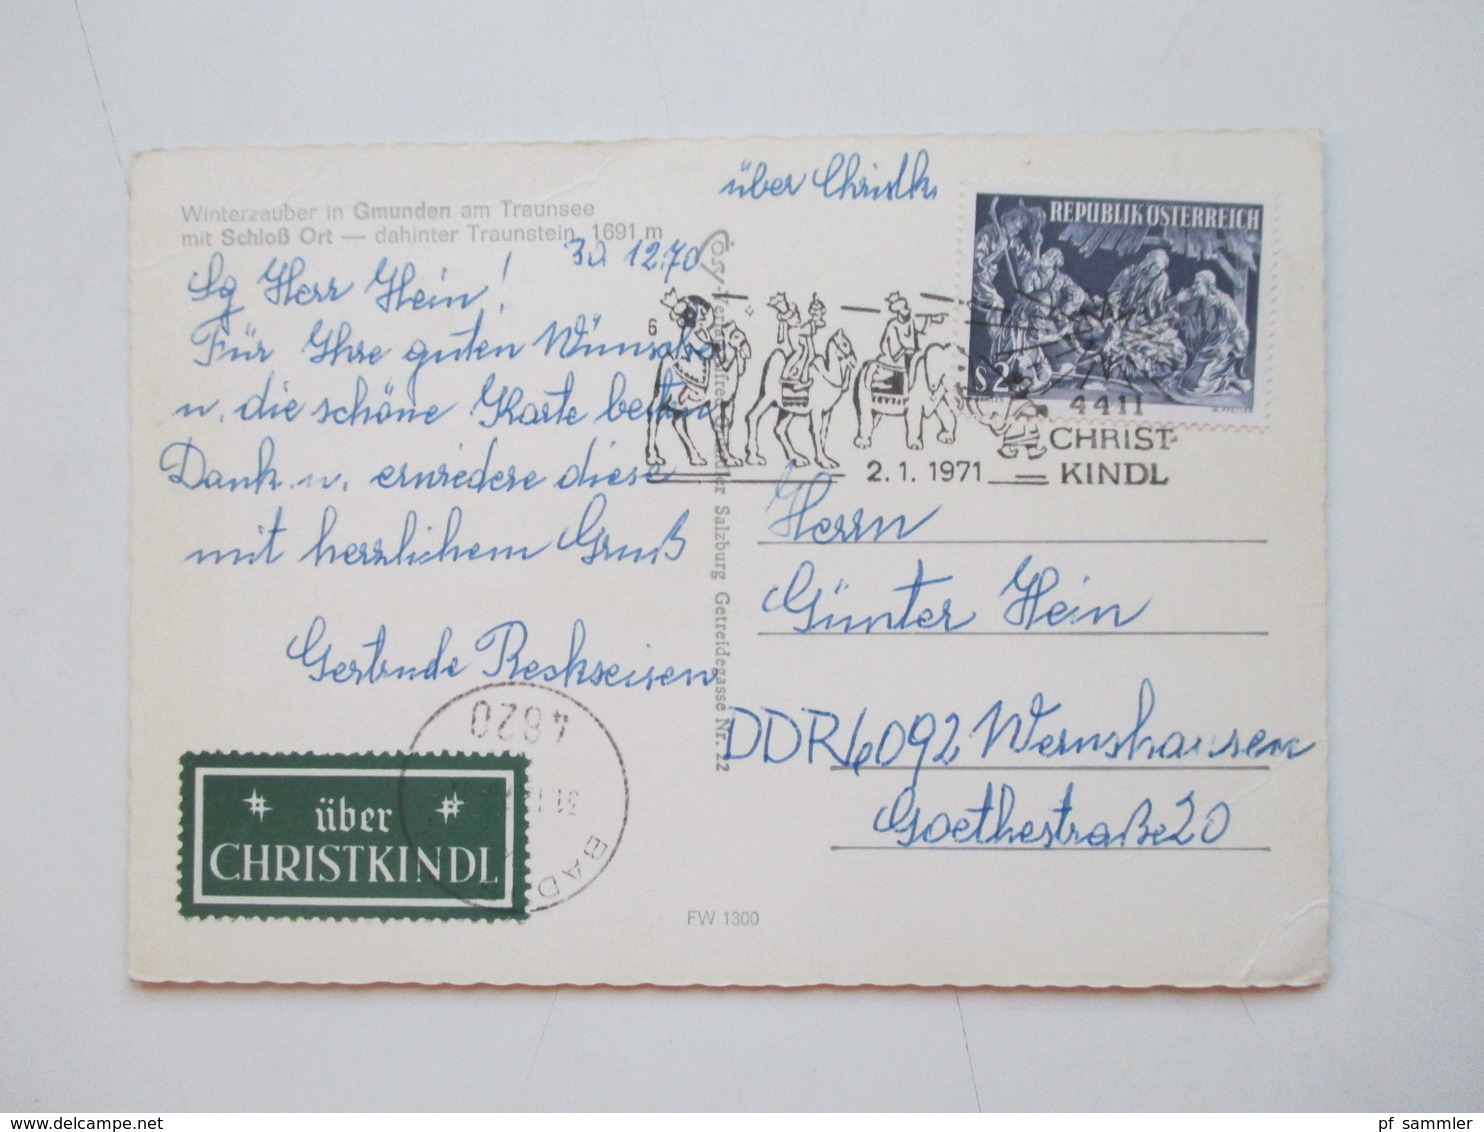 Winterzauber in Gmunden am Traunsee
mit Schloß Ort — dahinter Traunstein, 1691 m
30. 12. 70
Sg Herr Hein!
Für Ihre guten Wünsche
u. die schöne Karte besten
Dank u. erwidere diese
mit herzlichem Gruß
Gertrude
über
CHRISTKINDL
4820
BAD
Salzburg Getreidegasse Nr. 22
FW 1300
über Christk.
REPUBLIK ÖSTERREICH
S 2
6
2. 1. 1971
4411
CHRIST-
KINDL
Herrn
Günter Hein
DDR 6092 Wernshausen
Goethestraße 20
www.delcampe.net
pf_sammler